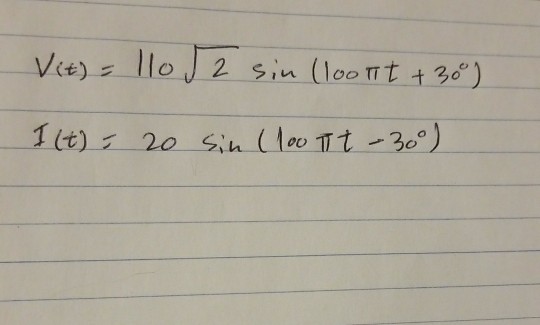 V(t) = 110√2 sin (100πt + 30°)
I(t) = 20 sin (100πt - 30°)